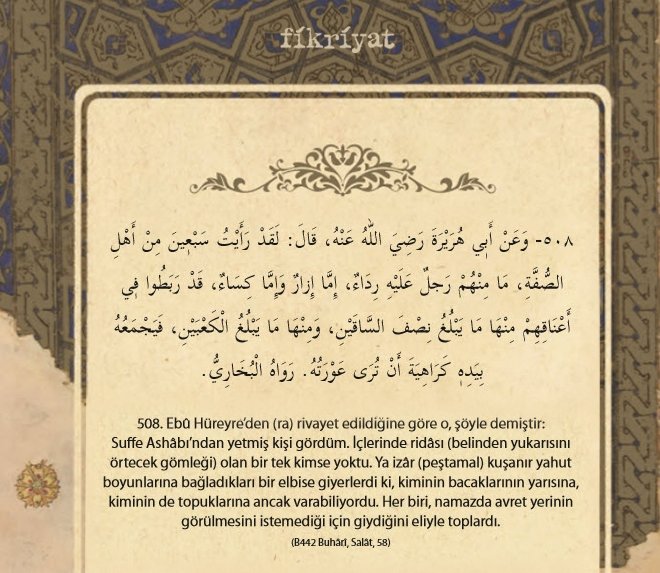 fikriyat
٥٠٨- وَعَنْ أَبِي هُرَيْرَةَ رَضِيَ اللَّهُ عَنْهُ، قَالَ: لَقَدْ رَأَيْتُ سَبْعِينَ مِنْ أَهْلِ
الصُّفَّةِ، مَا مِنْهُمْ رَجُلٌ عَلَيْهِ رِدَاءٌ، إِمَّا إِزَارٌ وَإِمَّا كِسَاءٌ، قَدْ رَبَطُوا فِي
أَعْنَاقِهِمْ مِنْهَا مَا يَبْلُغُ نِصْفَ السَّاقَيْنِ، وَمِنْهَا مَا يَبْلُغُ الْكَعْبَيْنِ، فَيَجْمَعُهُ
بِيَدِهِ كَرَاهِيَةَ أَنْ تُرَى عَوْرَتُهُ. رَوَاهُ الْبُخَارِيُّ.
508. Ebû Hüreyre’den (ra) rivayet edildiğine göre o, şöyle demiştir:
Suffe Ashâbı’ndan yetmiş kişi gördüm. İçlerinde ridâsı (belinden yukarısını
örtecek gömleği) olan bir tek kimse yoktu. Ya izâr (peştamal) kuşanır yahut
boyunlarına bağladıkları bir elbise giyerlerdi ki, kiminin bacaklarının yarısına,
kiminin de topuklarına ancak varabiliyordu. Her biri, namazda avret yerinin
görülmesini istemediği için giydiğini eliyle toplardı.
(B442 Buhârî, Salât, 58)